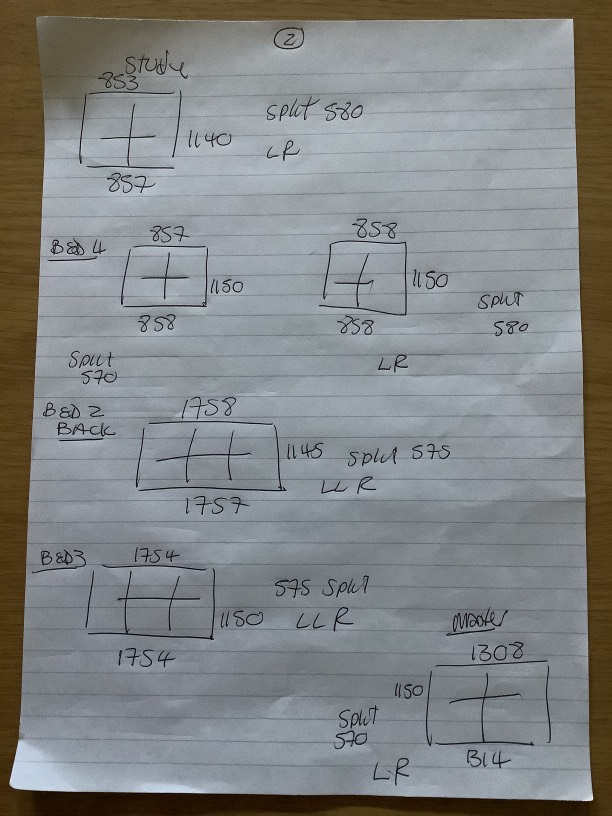 2
Study
853
1140
857
Split 580
LR
BED 4
857
1150
858
Split
570
858
1150
858
Split
580
LR
BED 2
BACK
1758
1145
1757
Split 575
LLR
BED3
1754
1150
1754
575 Split
LLR
Master
1308
1150
1314
Split
570
LR